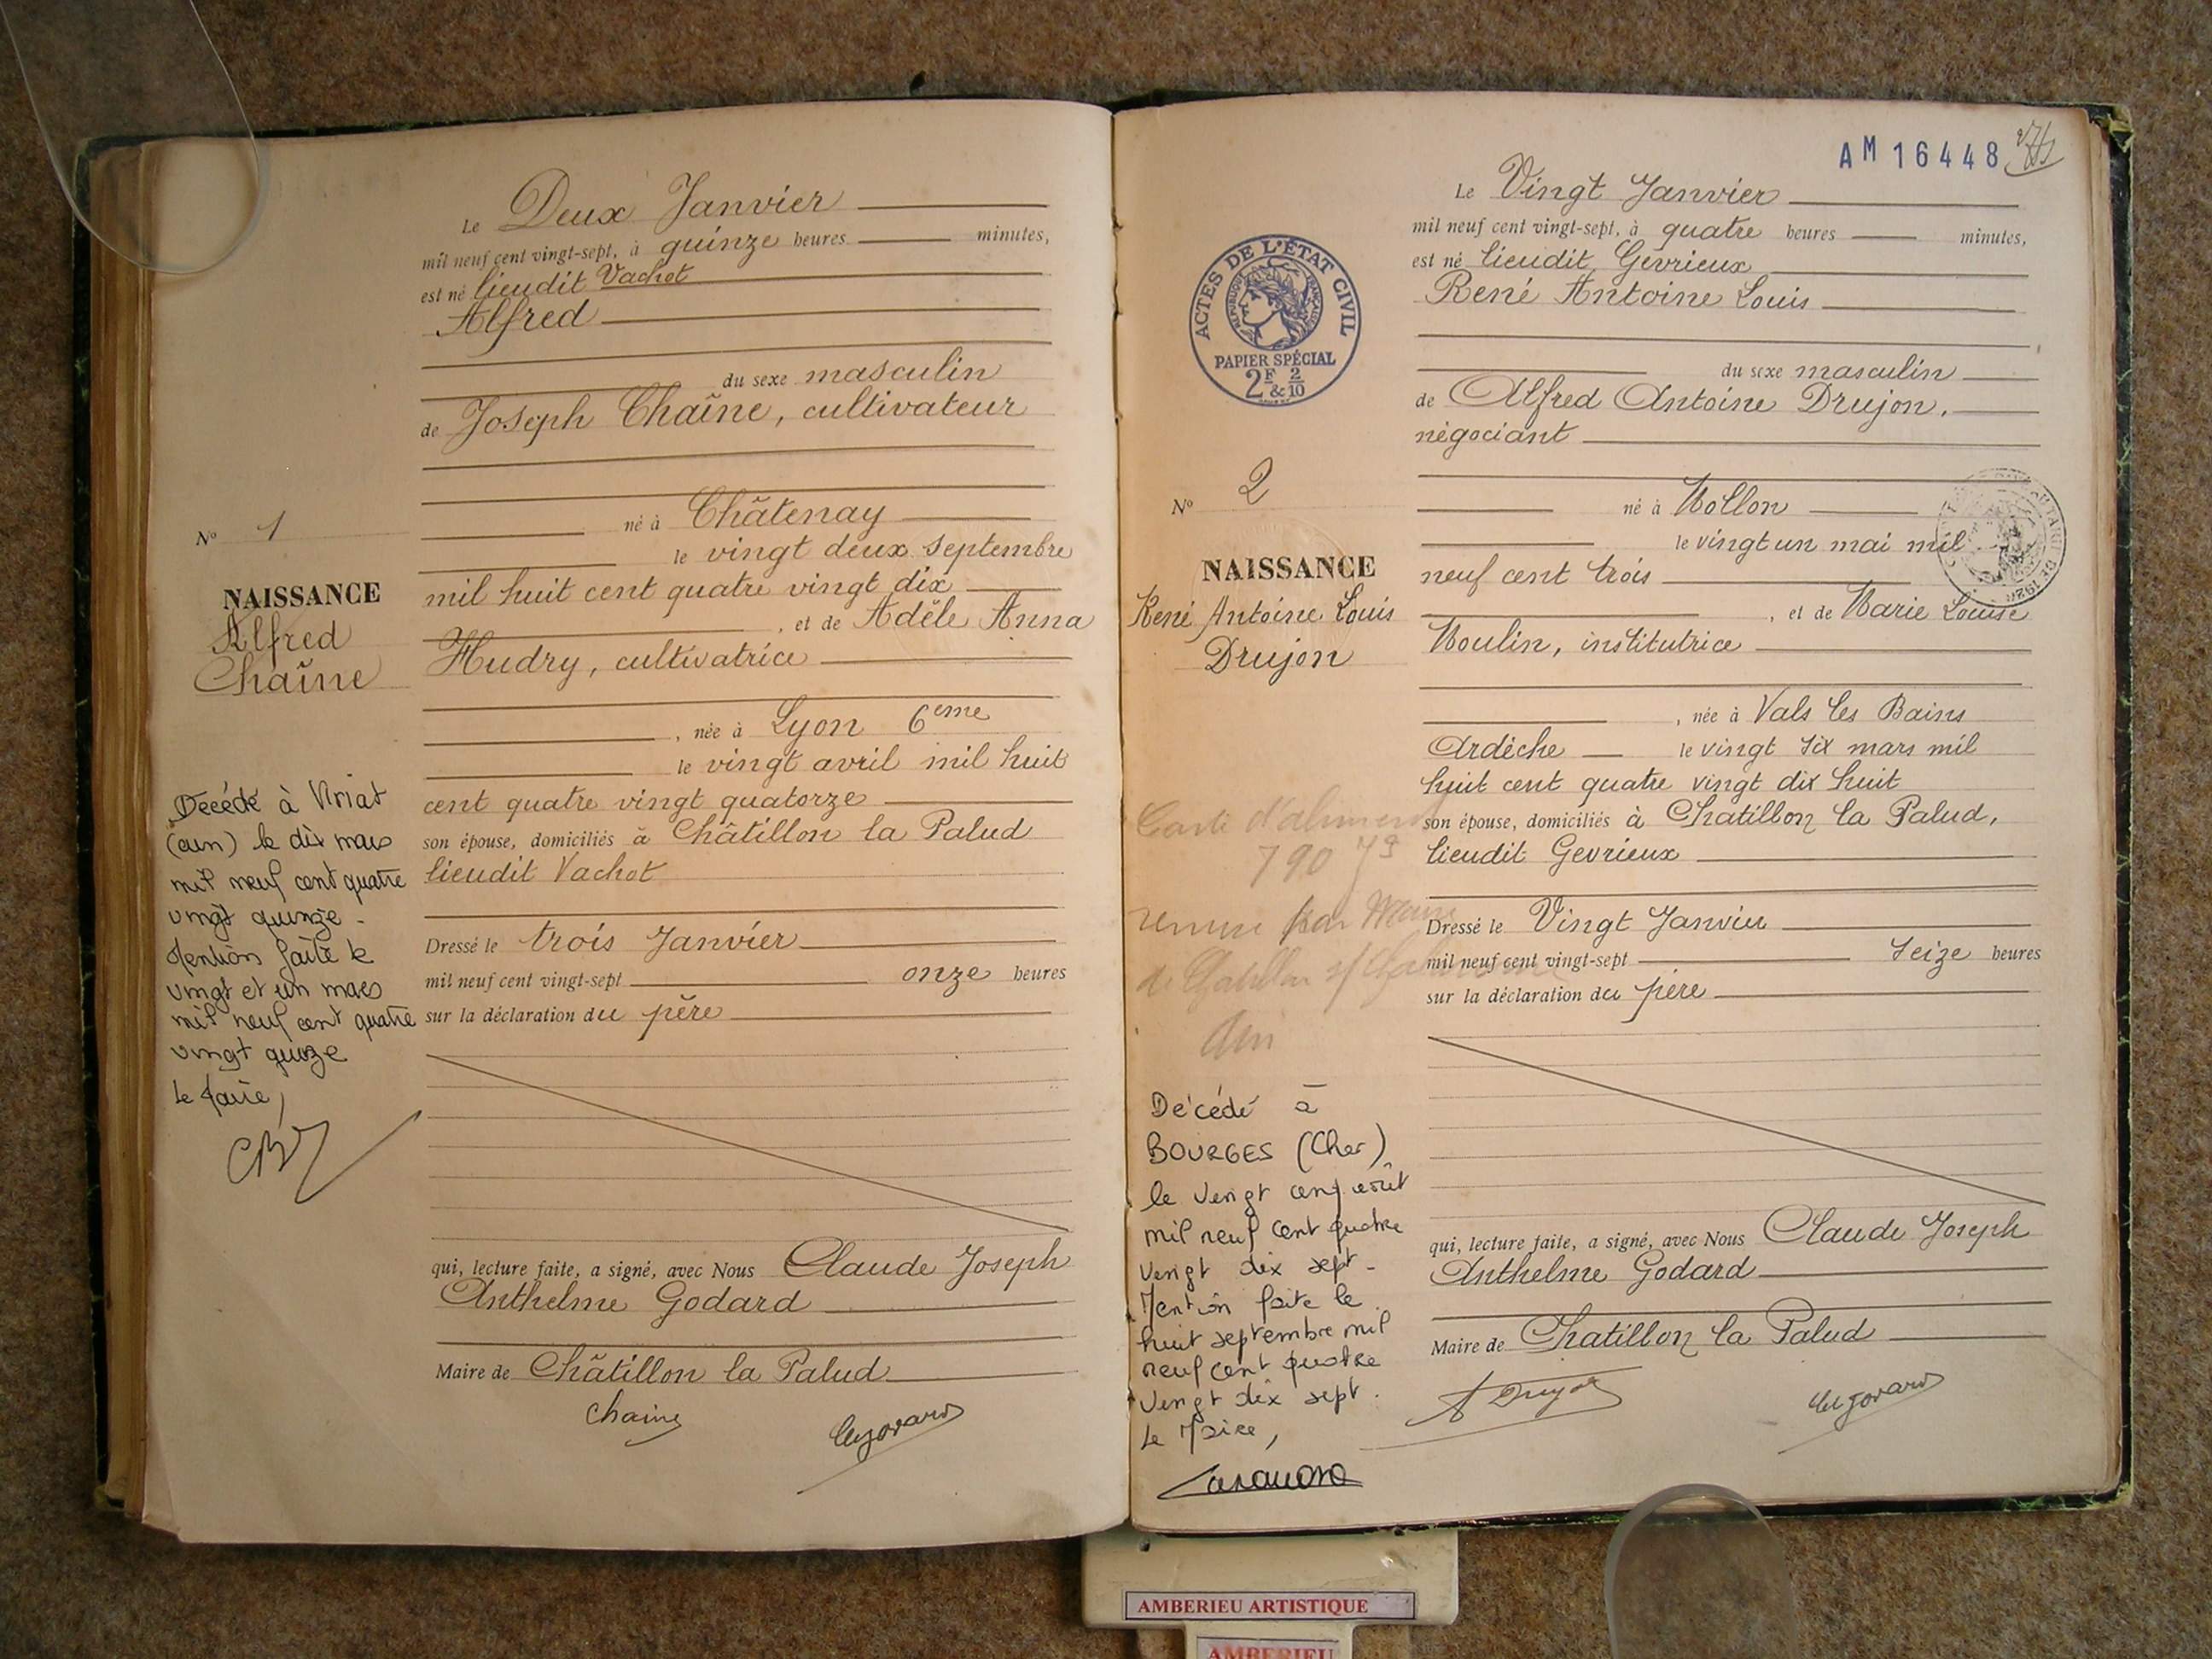 Le Deux Janvier
mil neuf cent vingt-sept, à quinze heures minutes,
est né lieudit Vachot
Alfred
du sexe masculin
de Joseph Chaîne, cultivateur
né à Châtenay
le vingt deux septembre
mil huit cent quatre vingt dix
, et de Adèle Anna
Hudry, cultivatrice
, née à Lyon 6eme
le vingt avril mil huit
cent quatre vingt quatorze
son épouse, domiciliés à Châtillon la Palud
lieudit Vachot
Dressé le trois Janvier
mil neuf cent vingt-sept onze heures
sur la déclaration du père
qui, lecture faite, a signé, avec Nous Claude Joseph
Anthelme Godard
Maire de Châtillon la Palud
Chaine
N° 1
NAISSANCE
Alfred
Chaîne
Décédé à Viriat
(ain) le dix mars
mil neuf cent quatre
vingt quinze -
Mention faite le
vingt et un mars
mil neuf cent quatre
vingt quinze
Le Maire,
AM 16448
Le Vingt Janvier
mil neuf cent vingt-sept, à quatre heures minutes,
est né lieudit Gevrieux
René Antoine Louis
du sexe masculin
de Alfred Antoine Drujon,
négociant
né à Mollon
le vingt un mai mil
neuf cent trois
, et de Marie Louise
Moulin, institutrice
, née à Vals les Bains
Ardèche le vingt six mars mil
huit cent quatre vingt dix huit
son épouse, domiciliés à Chatillon la Palud,
lieudit Gevrieux
Dressé le Vingt Janvier
mil neuf cent vingt-sept seize heures
sur la déclaration du père
qui, lecture faite, a signé, avec Nous Claude Joseph
Anthelme Godard
Maire de Chatillon la Palud
A Drujon
ACTES DE L'ÉTAT CIVIL
RÉPUBLIQUE FRANÇAISE
PAPIER SPÉCIAL
2F & 2/10
N° 2
NAISSANCE
René Antoine Louis
Drujon
Carte d'alimen
790
par Maire
de Chatillon s/
Ain
Décédé à
BOURGES (Cher)
le vingt cinq août
mil neuf cent quatre
vingt dix sept -
Mention faite le
huit septembre mil
neuf cent quatre
vingt dix sept.
Le Maire,
AMBERIEU ARTISTIQUE
AMBERIEU